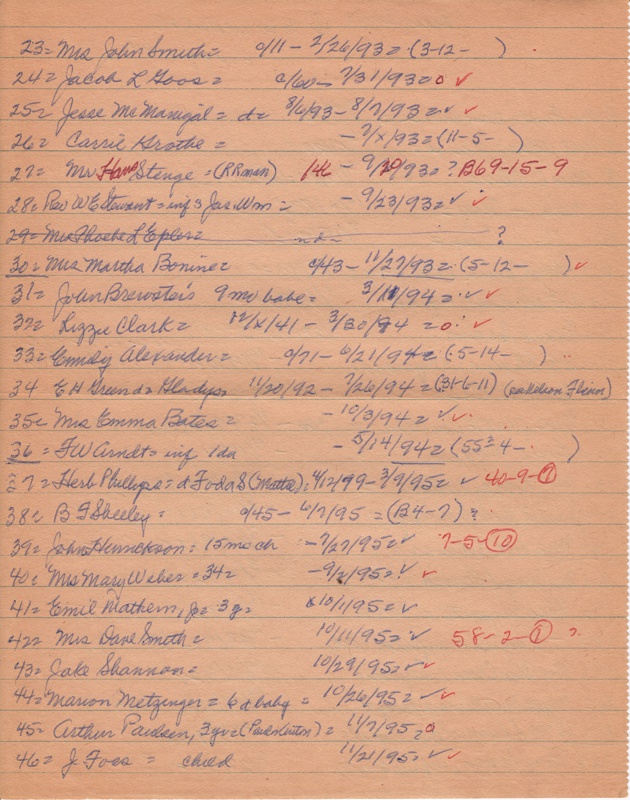 23= Mrs John Smith= c/11 - 2/26/93= (3-12- )
24= Jacob L Goos= c/60- 7/31/93=0 ✓
25= Jesse McManigal= d= 8/6/93-8/7/93=✓ ✓
26= Carrie Grothe= - 7/x/93=(11-5- )
27= Mr Hans Stenge=(RRman) 146 - 9/20/93=? B69-15-9
28= Rev W E Stewart=inf 3 Jas. Wm= - 9/23/93=✓ ✓
29= Mrs Phoebe L Epler= n.d= ?
30= Mrs Martha Bonine= c/43- 11/27/93=(5-12- )✓
31= John Brewster's 9 mo babe= 3/11/94=✓ ✓
32= Lizzie Clark= 12/x/41- 3/30/94=0 ✓
33= Emily Alexander= c/71- 6/21/94=(5-14- )
34 E H Green d= Gladys 11/20/92-7/26/94=(31-6-11)
35= Mrs Emma Bates= -10/3/94=✓✓
36= F W Arndt= inf 1da -5/14/94=(55=4- )
37= Herb Phillips= d 4/12/99-3/9/95=✓ 40-9-①
38= B F Sheeley= c/45- 6/7/95=(B4-7)?
39= John Henrickson= 15 mo ch -7/27/95=✓ 7-5-⑩
40= Mrs Mary Weber=34= -9/2/95=✓ ✓
41= Emil Mathern, Jr= 3y= 10/1/95=✓
42= Mrs Dave Smith= 10/11/95=✓ 58-2-① ?
43= Jake Shannon= 10/29/95=✓✓
44= Marion Metzinger= 6 d baby= 10/26/95=✓✓
45= Arthur Paulsen, 3yr= 11/7/95=0
46= J Foos= child 11/21/95=✓✓